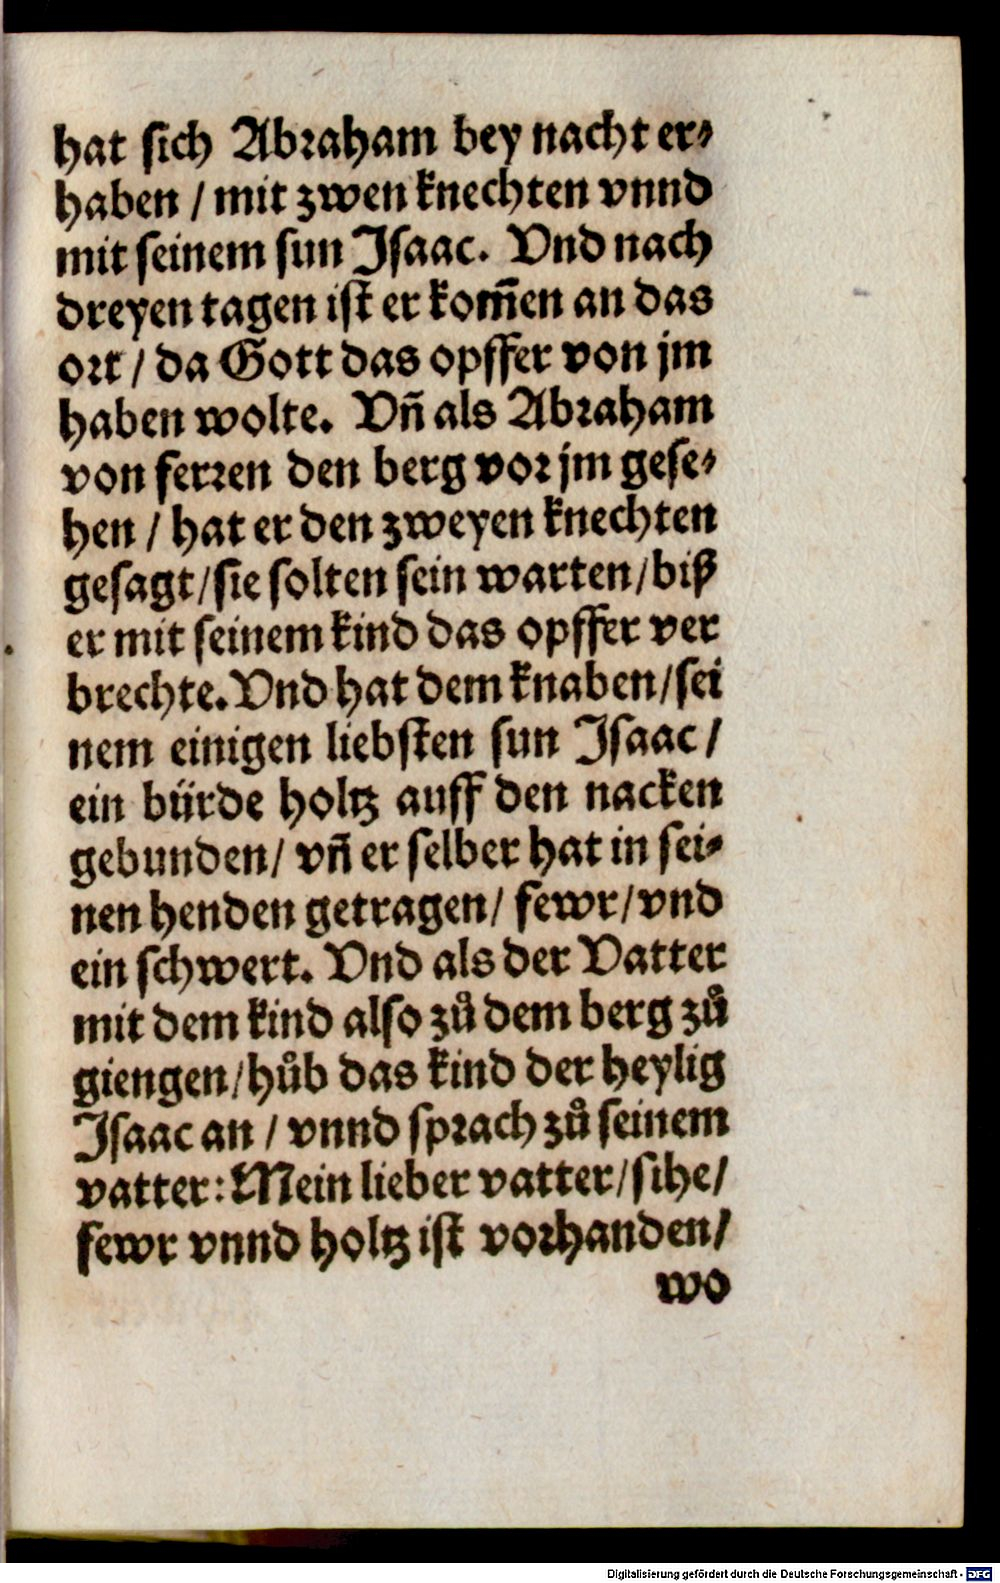 hat sich Abraham bey nacht er⸗
haben / mit zwen knechten vnnd
mit seinem sun Isaac. Vnd nach
dreyen tagen ist er kom̃en an das
ort / da Gott das opffer von jm
haben wolte. Vñ als Abraham
von ferren den berg vor jm gese⸗
hen / hat er den zweyen knechten
gesagt / sie solten sein warten / biß
er mit seinem kind das opffer ver
brechte. Vnd hat dem knaben / sei
nem einigen liebsten sun Isaac /
ein bürde holtz auff den nacken
gebunden / vñ er selber hat in sei⸗
nen henden getragen / fewr / vnd
ein schwert. Vnd als der Vatter
mit dem kind also zů dem berg zů
giengen / hůb das kind der heylig
Isaac an / vnnd sprach zů seinem
vatter: Mein lieber vatter / sihe /
fewr vnnd holtz ist vorhanden /
wo
Digitalisierung gefördert durch die Deutsche Forschungsgemeinschaft - DFG